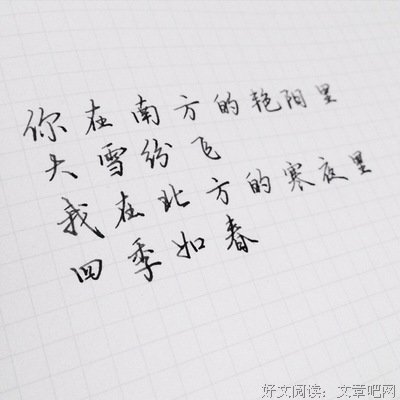 你在南方的艳阳里
大雪纷飞
我在北方的寒夜里
四季如春
好文阅读：文章吧网